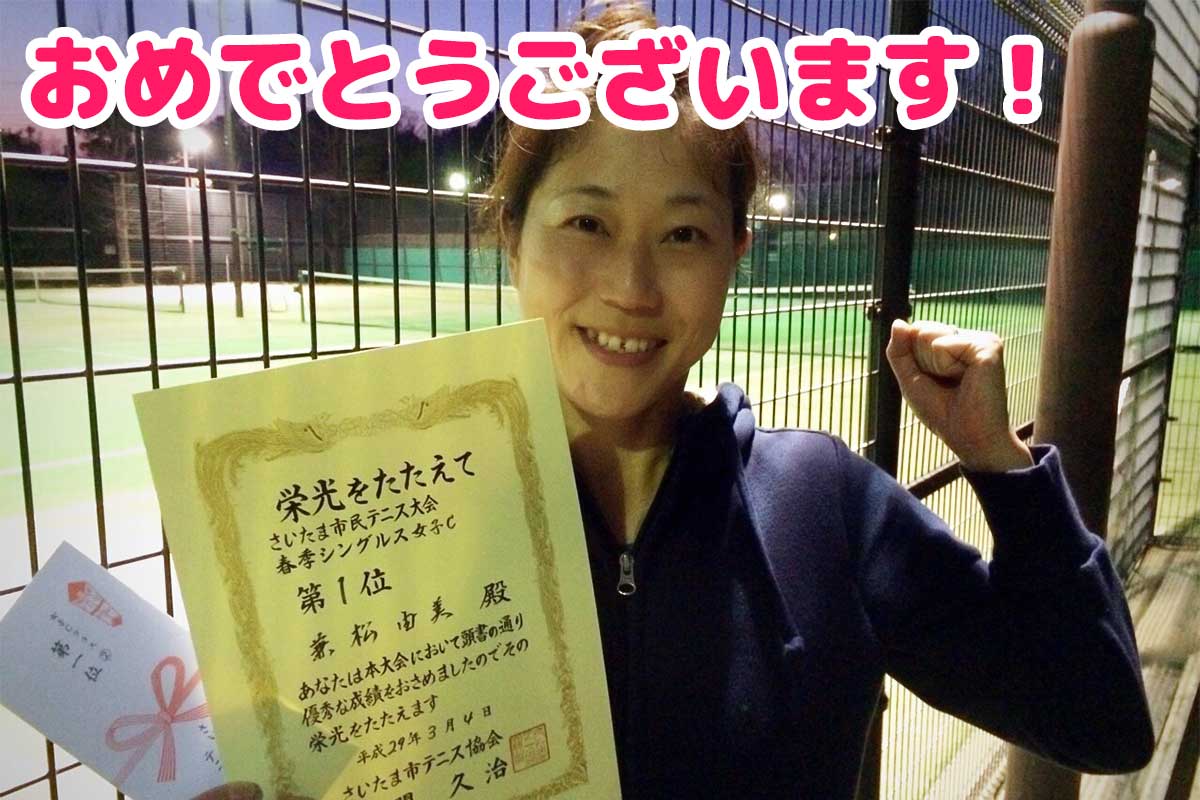 おめでとうございます！
栄光をたたえて
さいたま市民テニス大会
春季シングルス女子C
第1位
兼松由美 殿
あなたは本大会において頭書の通り
優秀な成績をおさめましたのでその
栄光をたたえます
平成29年3月4日
さいたま市テニス協会
久治
第一位